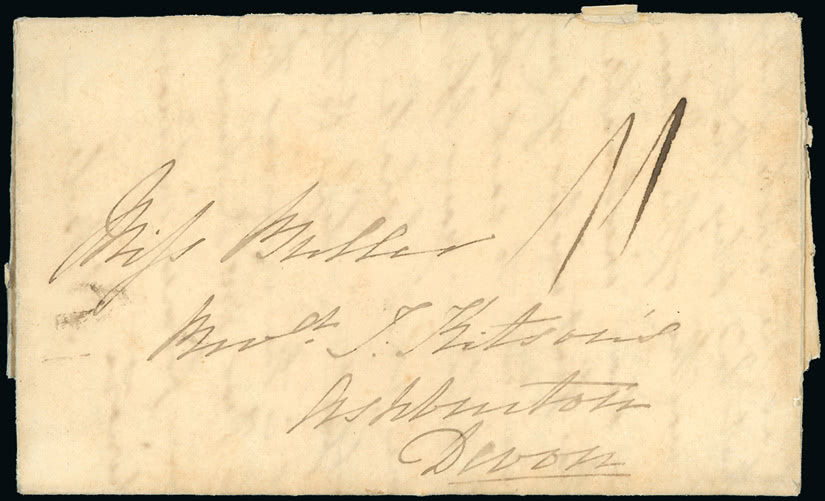 11
Miss Buller
T. Kitson's
Ashburton
Devon